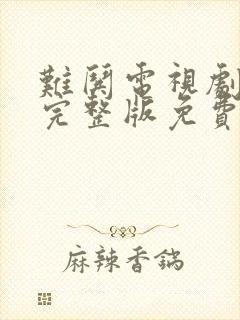 難關電視劇
完整版免費
麻辣香鍋